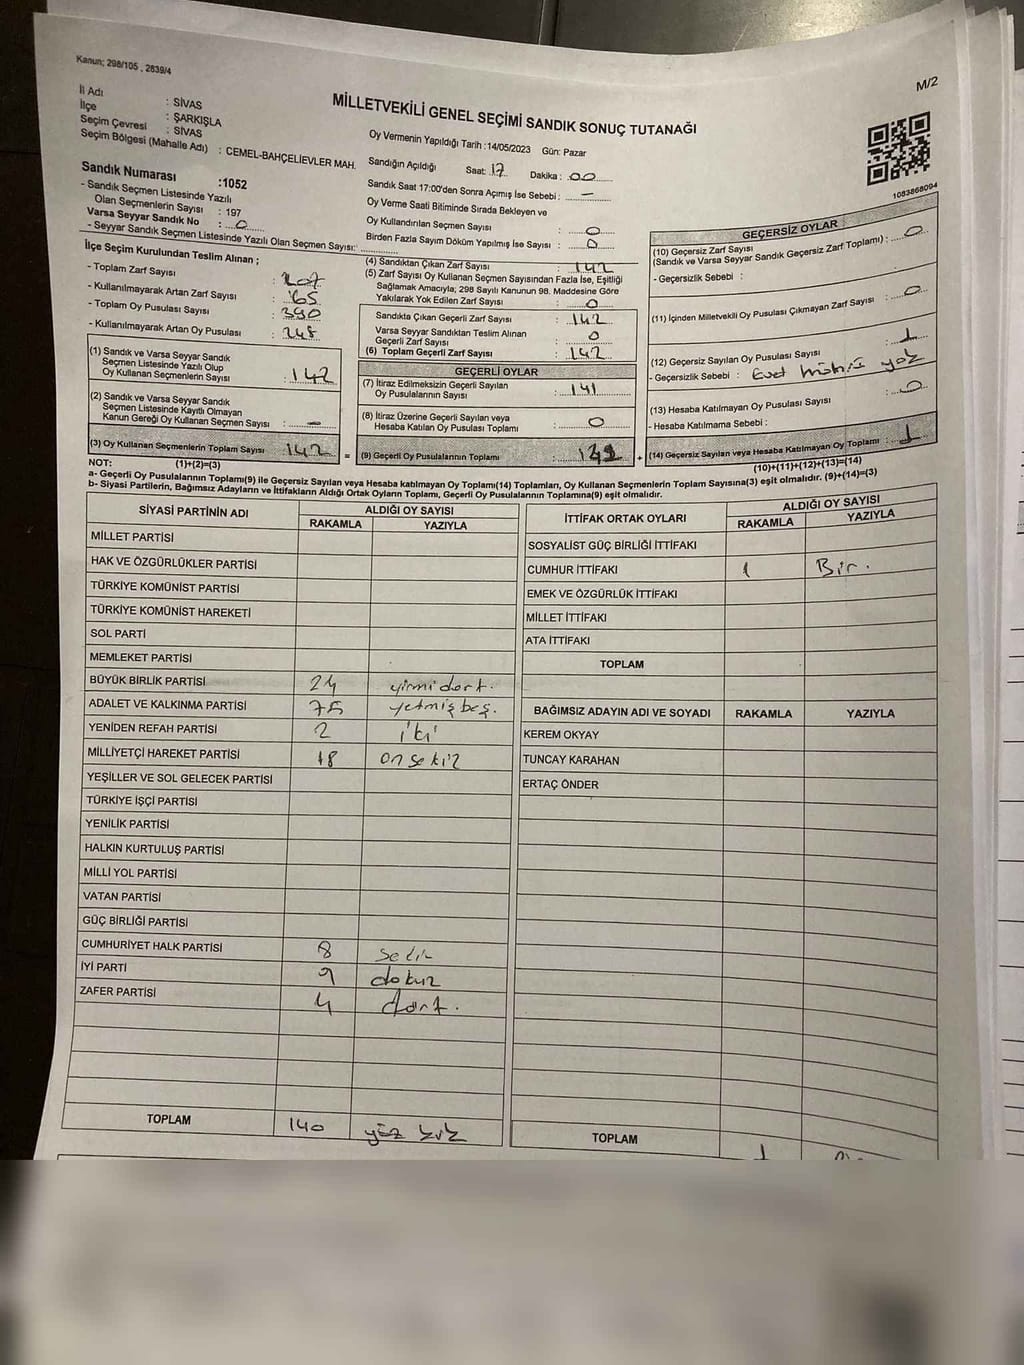 Kanun; 298/105 , 2839/4
M/2
MİLLETVEKİLİ GENEL SEÇİMİ SANDIK SONUÇ TUTANAĞI
İl Adı : SİVAS
İlçe : ŞARKIŞLA
Seçim Çevresi : SİVAS
Seçim Bölgesi (Mahalle Adı) : CEMEL-BAHÇELİEVLER MAH.
Sandık Numarası :1052
- Sandık Seçmen Listesinde Yazılı
Olan Seçmenlerin Sayısı : 197
Varsa Seyyar Sandık No : 0
- Seyyar Sandık Seçmen Listesinde Yazılı Olan Seçmen Sayısı:
Oy Vermenin Yapıldığı Tarih :14/05/2023 Gün: Pazar
Sandığın Açıldığı Saat: 17 Dakika : 00
Sandık Saat 17:00'den Sonra Açımış İse Sebebi : –
Oy Verme Saati Bitiminde Sırada Bekleyen ve
Oy Kullandırılan Seçmen Sayısı : 0
Birden Fazla Sayım Döküm Yapılmış İse Sayısı : 0
1083868094
İlçe Seçim Kurulundan Teslim Alınan ;
- Toplam Zarf Sayısı : 207
- Kullanılmayarak Artan Zarf Sayısı : 65
- Toplam Oy Pusulası Sayısı : 390
- Kullanılmayarak Artan Oy Pusulası : 248
(1) Sandık ve Varsa Seyyar Sandık
Seçmen Listesinde Yazılı Olup
Oy Kullanan Seçmenlerin Sayısı : 142
(2) Sandık ve Varsa Seyyar Sandık
Seçmen Listesinde Kayıtlı Olmayan
Kanun Gereği Oy Kullanan Seçmen Sayısı : –
(3) Oy Kullanan Seçmenlerin Toplam Sayısı : 142 =
(4) Sandıktan Çıkan Zarf Sayısı : 142
(5) Zarf Sayısı Oy Kullanan Seçmen Sayısından Fazla İse, Eşitliği
Sağlamak Amacıyla; 298 Sayılı Kanunun 98. Maddesine Göre
Yakılarak Yok Edilen Zarf Sayısı : 0
Sandıkta Çıkan Geçerli Zarf Sayısı : 142
Varsa Seyyar Sandıktan Teslim Alınan
Geçerli Zarf Sayısı : 0
(6) Toplam Geçerli Zarf Sayısı : 142
GEÇERLİ OYLAR
(7) İtiraz Edilmeksizin Geçerli Sayılan
Oy Pusulalarının Sayısı : 141
(8) İtiraz Üzerine Geçerli Sayılan veya
Hesaba Katılan Oy Pusulası Toplamı : 0
(9) Geçerli Oy Pusulalarının Toplamı : +
GEÇERSİZ OYLAR
(10) Geçersiz Zarf Sayısı
(Sandık ve Varsa Seyyar Sandık Geçersiz Zarf Toplamı) : 0
- Geçersizlik Sebebi :
(11) İçinden Milletvekili Oy Pusulası Çıkmayan Zarf Sayısı : 0
(12) Geçersiz Sayılan Oy Pusulası Sayısı : 1
- Geçersizlik Sebebi : Evet mührü yok
(13) Hesaba Katılmayan Oy Pusulası Sayısı : 0
- Hesaba Katılmama Sebebi :
(14) Geçersiz Sayılan veya Hesaba Katılmayan Oy Toplamı : 1
NOT: (1)+(2)=(3) (10)+(11)+(12)+(13)=(14)
a- Geçerli Oy Pusulalarının Toplamı(9) ile Geçersiz Sayılan veya Hesaba Katılmayan Oy Toplamı(14) Toplamları, Oy Kullanan Seçmenlerin Toplam Sayısına(3) eşit olmalıdır. (9)+(14)=(3)
b- Siyasi Partilerin, Bağımsız Adayların ve İttifakların Aldığı Ortak Oyların Toplamı, Geçerli Oy Pusulalarının Toplamına(9) eşit olmalıdır.
SİYASİ PARTİNİN ADI ALDIĞI OY SAYISI
RAKAMLA YAZIYLA
MİLLET PARTİSİ
HAK VE ÖZGÜRLÜKLER PARTİSİ
TÜRKİYE KOMÜNİST PARTİSİ
TÜRKİYE KOMÜNİST HAREKETİ
SOL PARTİ
MEMLEKET PARTİSİ
BÜYÜK BİRLİK PARTİSİ 24 yirmi dört.
ADALET VE KALKINMA PARTİSİ 75 yetmiş beş.
YENİDEN REFAH PARTİSİ 2 iki
MİLLİYETÇİ HAREKET PARTİSİ 18 on sekiz
YEŞİLLER VE SOL GELECEK PARTİSİ
TÜRKİYE İŞÇİ PARTİSİ
YENİLİK PARTİSİ
HALKIN KURTULUŞ PARTİSİ
MİLLİ YOL PARTİSİ
VATAN PARTİSİ
GÜÇ BİRLİĞİ PARTİSİ
CUMHURİYET HALK PARTİSİ 8 sekiz
İYİ PARTİ 9 dokuz
ZAFER PARTİSİ 4 dört.
TOPLAM 140 yüz kırk
İTTİFAK ORTAK OYLARI ALDIĞI OY SAYISI
RAKAMLA YAZIYLA
SOSYALİST GÜÇ BİRLİĞİ İTTİFAKI
CUMHUR İTTİFAKI 1 Bir.
EMEK VE ÖZGÜRLÜK İTTİFAKI
MİLLET İTTİFAKI
ATA İTTİFAKI
TOPLAM
BAĞIMSIZ ADAYIN ADI VE SOYADI RAKAMLA YAZIYLA
KEREM OKYAY
TUNCAY KARAHAN
ERTAÇ ÖNDER
TOPLAM 1